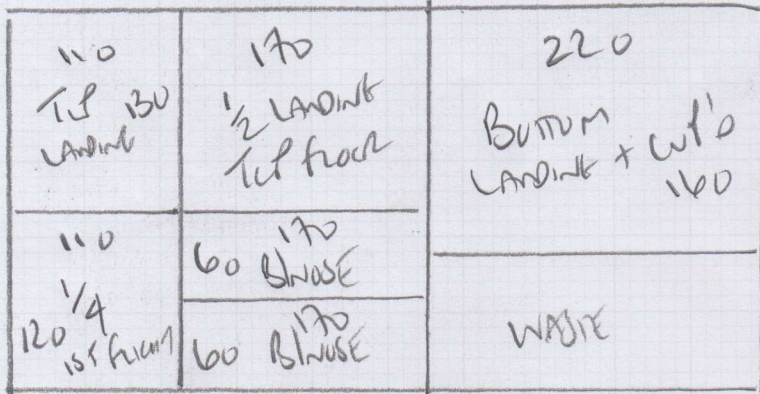 110
TOP 130
LANDING
170
1/2 LANDING
TOP FLOOR
220
BOTTOM
LANDING + CUP'D
160
110
1/4
120 1ST FLIGHT
170
60 B/NOSE
170
60 B/NOSE
WASTE